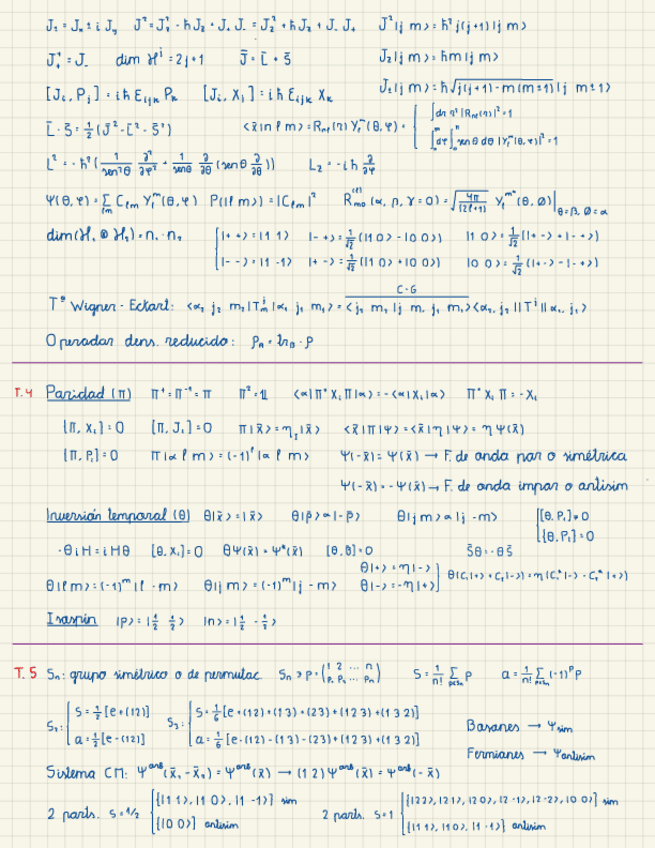 J± = Jx ± i Jy   J² = Jz² - ħ Jz + J+ J- = Jz² + ħ Jz + J- J+   J² |j m> = ħ² j(j+1) |j m>
J+† = J-   dim ℋʲ = 2j+1   J̄ = L̄ + S̄   Jz |j m> = ħm |j m>
[Ji, Pj] = iħ εijk Pk   [Ji, Xj] = iħ εijk Xk   J± |j m> = ħ √(j(j+1) - m(m±1)) |j m±1>
L̄ · S̄ = 1/2 (J̄² - L̄² - S̄²)   <x̄|n l m> = Rnl(r) Yl^m(θ, φ) = { ∫dr r² |Rnl(r)|² = 1
∫dφ ∫ sen θ dθ |Yl^m(θ, φ)|² = 1
L² = -ħ² (1/sen²θ ∂²/∂φ² + 1/senθ ∂/∂θ (sen θ ∂/∂θ))   Lz = -iħ ∂/∂φ
Ψ(θ, φ) = Σlm Clm Yl^m(θ, φ)   P(|l m>) = |Clm|²   Rm0^(l)(α, β, γ = 0) = √(4π/(2l+1)) Yl^m*(θ, Ø)|θ=β, Ø=α
dim(ℋ1 ⊗ ℋ2) = n1 · n2   { |+ +> = |1 1>   |- +> = 1/√2 (|1 0> - |0 0>)   |1 0> = 1/√2 (|+ -> + |- +>)
|- -> = |1 -1>   |+ -> = 1/√2 (|1 0> + |0 0>)   |0 0> = 1/√2 (|+ -> - |- +>)
C·G
Tª Wigner - Eckart: <α2 j2 m2 |Tm^j| α1 j1 m1> = <j2 m2 |j m, j1 m1> <α2, j2 || Tʲ || α1, j1>
Operador dens. reducido: ρA = trB · ρ
T.4 Paridad (Π)   Π† = Π⁻¹ = Π   Π² = 𝟙   <α|Π† Xi Π|α> = -<α|Xi|α>   Π† Xi Π = -Xi
{Π, Xi} = 0   [Π, Ji] = 0   Π|x̄> = η|-x̄>   <x̄|Π|Ψ> = <x̄|η|Ψ> = η Ψ(x̄)
{Π, Pi} = 0   Π|α l m> = (-1)^l |α l m>   Ψ(-x̄) = Ψ(x̄) → F. de onda par o simétrica
Ψ(-x̄) = -Ψ(x̄) → F. de onda impar o antisim
Inversión temporal (θ)   θ|x̄> = |x̄>   θ|p̄> ∝ |-p̄>   θ|j m> ∝ |j -m>   { [θ, Pi] ≠ 0
{θ, Pi} = 0
· θ i H = i H θ   [θ, Xi] = 0   θΨ(x̄) = Ψ*(x̄)   [θ, D] = 0   S̄θ = -θS̄
θ|l m> = (-1)^m |l -m>   θ|j m> = (-1)^m |j -m>   θ|+> = η|->
θ|-> = -η|+>   } θ(C+|+> + C-|->) = η(C+*|-> - C-*|+>)
Isospín   |p> = |1/2 1/2>   |n> = |1/2 -1/2>
T.5 Sn: grupo simétrico o de permutac.   Sn ∋ p = (1 2 ... n / p1 p2 ... pn)   S = 1/n! Σp∈Sn p   a = 1/n! Σp∈Sn (-1)^p p
S2: { S = 1/2 [e + (12)]   S3: { S = 1/6 [e + (12) + (13) + (23) + (123) + (132)]   Bosones → Ψsim
a = 1/2 [e - (12)]   a = 1/6 [e - (12) - (13) - (23) + (123) + (132)]   Fermiones → Ψantisim
Sistema CM: Ψorb(x̄1 - x̄2) = Ψorb(x̄) → (12) Ψorb(x̄) = Ψorb(-x̄)
2 parts. S = 1/2 { {|1 1>, |1 0>, |1 -1>} sim   2 parts. S = 1 { {|2 2>, |2 1>, |2 0>, |2 -1>, |2 -2>, |0 0>} sim
{|0 0>} antisim   {|1 1>, |1 0>, |1 -1>} antisim